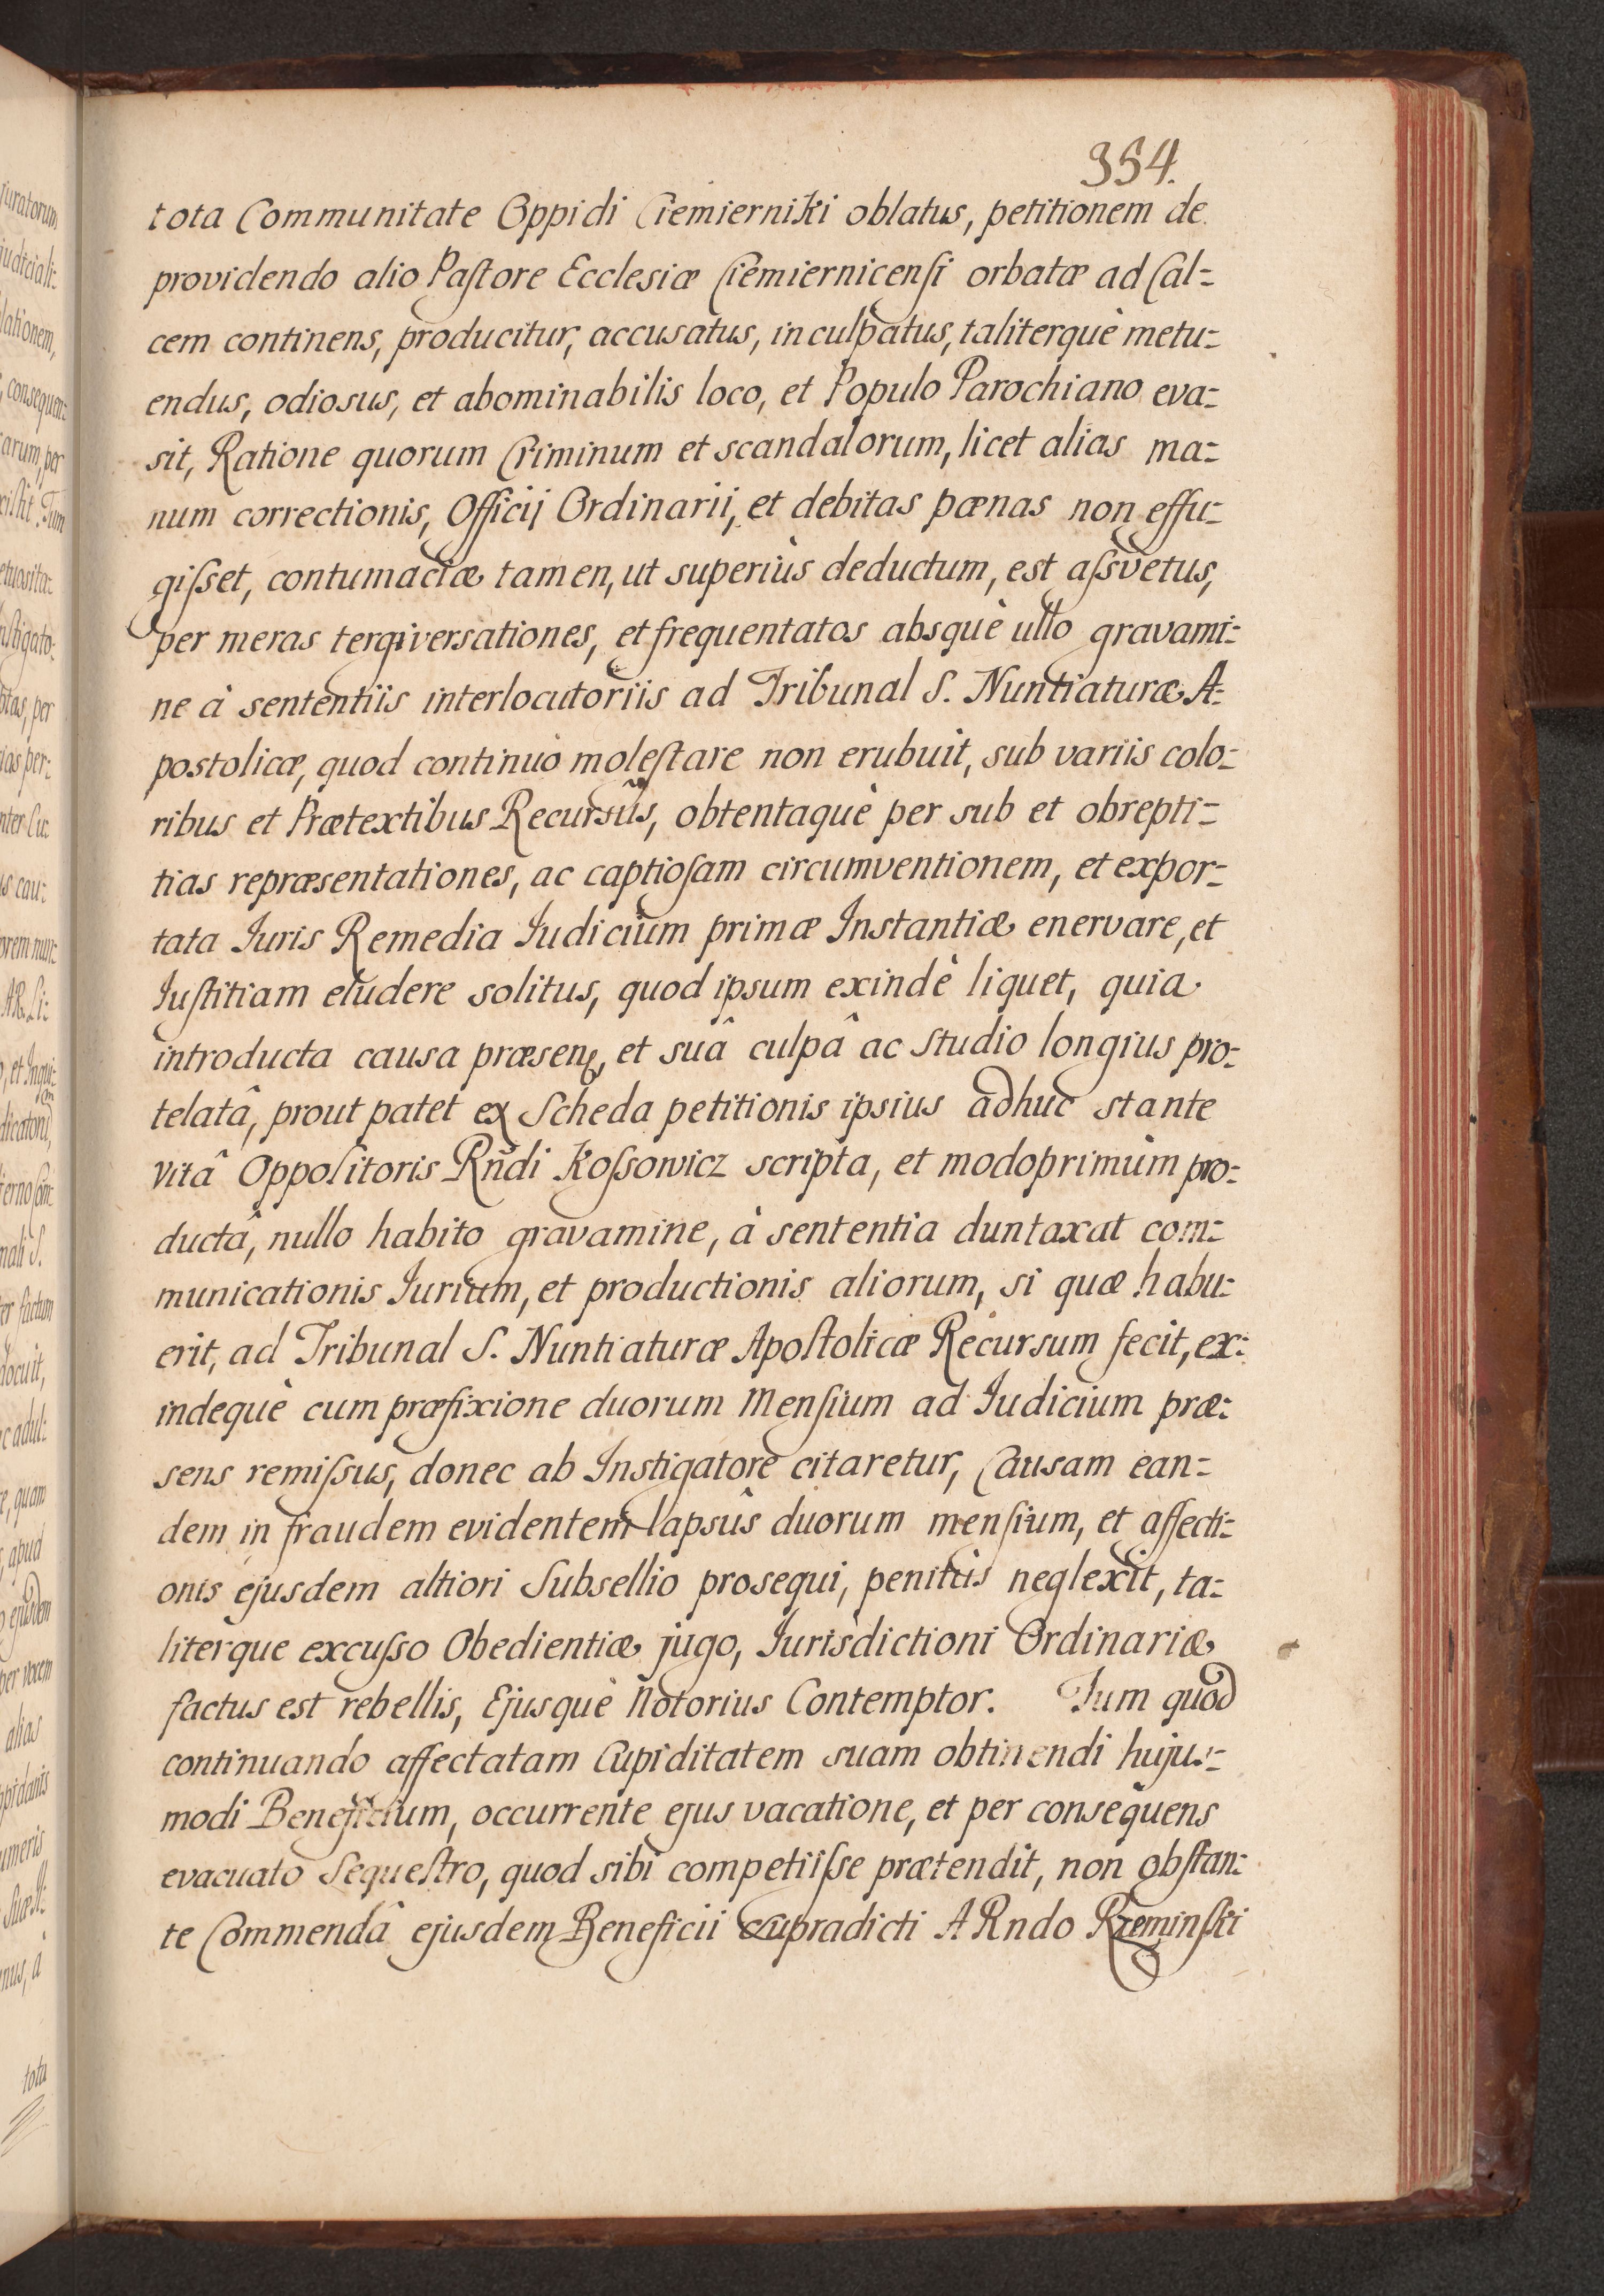 354.
tota Communitate Oppidi Ciemierniki oblatus, petitionem de
providendo alio Paſtore Ecclesiæ Ciemiernicenſi orbatæ ad Cal=
cem continens, producitur, accusatus, inculpatus, taliterquè metu=
endus, odiosus, et abominabilis loco, et Populo Parochiano eva=
sit, Ratione quorum Criminum et scandalorum, licet alias ma=
num correctionis, Officij Ordinarii, et debitas pænas non effu=
giſset, contumaciæ tamen, ut superiùs deductum, est aſsvetus,
per meras tergiversationes, et frequentatos absquè ullo gravami=
ne à sententiis interlocutoriis ad Tribunal S. Nuntiaturæ A=
postolicæ, quod continuò moleſtare non erubuit, sub variis colo=
ribus et Prætextibus Recursûs, obtentaquè per sub et obrepti=
tias repræsentationes, ac captioſam circumventionem, et expor=
tata Iuris Remedia Iudicium primæ Instantiæ enervare, et
Iuſtitiam eludere solitus, quod ipsum exindè liquet, quia
introducta causa præsenti, et suâ culpâ ac studio longius pro=
telatâ, prout patet ex Scheda petitionis ipsius adhuc stante
vitâ Oppoſitoris Rñdi Koſsowicz scripta, et modoprimùm pro=
ductâ, nullo habito gravamine, à sententia duntaxat com=
municationis Iurium, et productionis aliorum, si quæ habu=
erit, ad Tribunal S. Nuntiaturæ Apoſtolicæ Recursum fecit, ex=
indequè cum præfixione duorum Menſium ad Iudicium præ=
sens remiſsus, donec ab Instigatore citaretur, Causam ean=
dem in fraudem evidentem lapsûs duorum menſium, et affecti=
onis ejusdem altiori Subsellio prosequi, penitùs neglexit, ta=
literque excuſso Obedientiæ jugo, Iurisdictioni Ordinariæ
factus est rebellis, Ejusquè Notorius Contemptor. Tum quod
continuando affectatam Cupiditatem suam obtinendi hujus=
modi Beneficium, occurrente ejus vacatione, et per conseqũens
evacuato Sequeſtro, quod sibi competiiſse prætendit, non obſtan=
te Commendâ ejusdem Beneficii supradicti A Rndo Rzeminſki